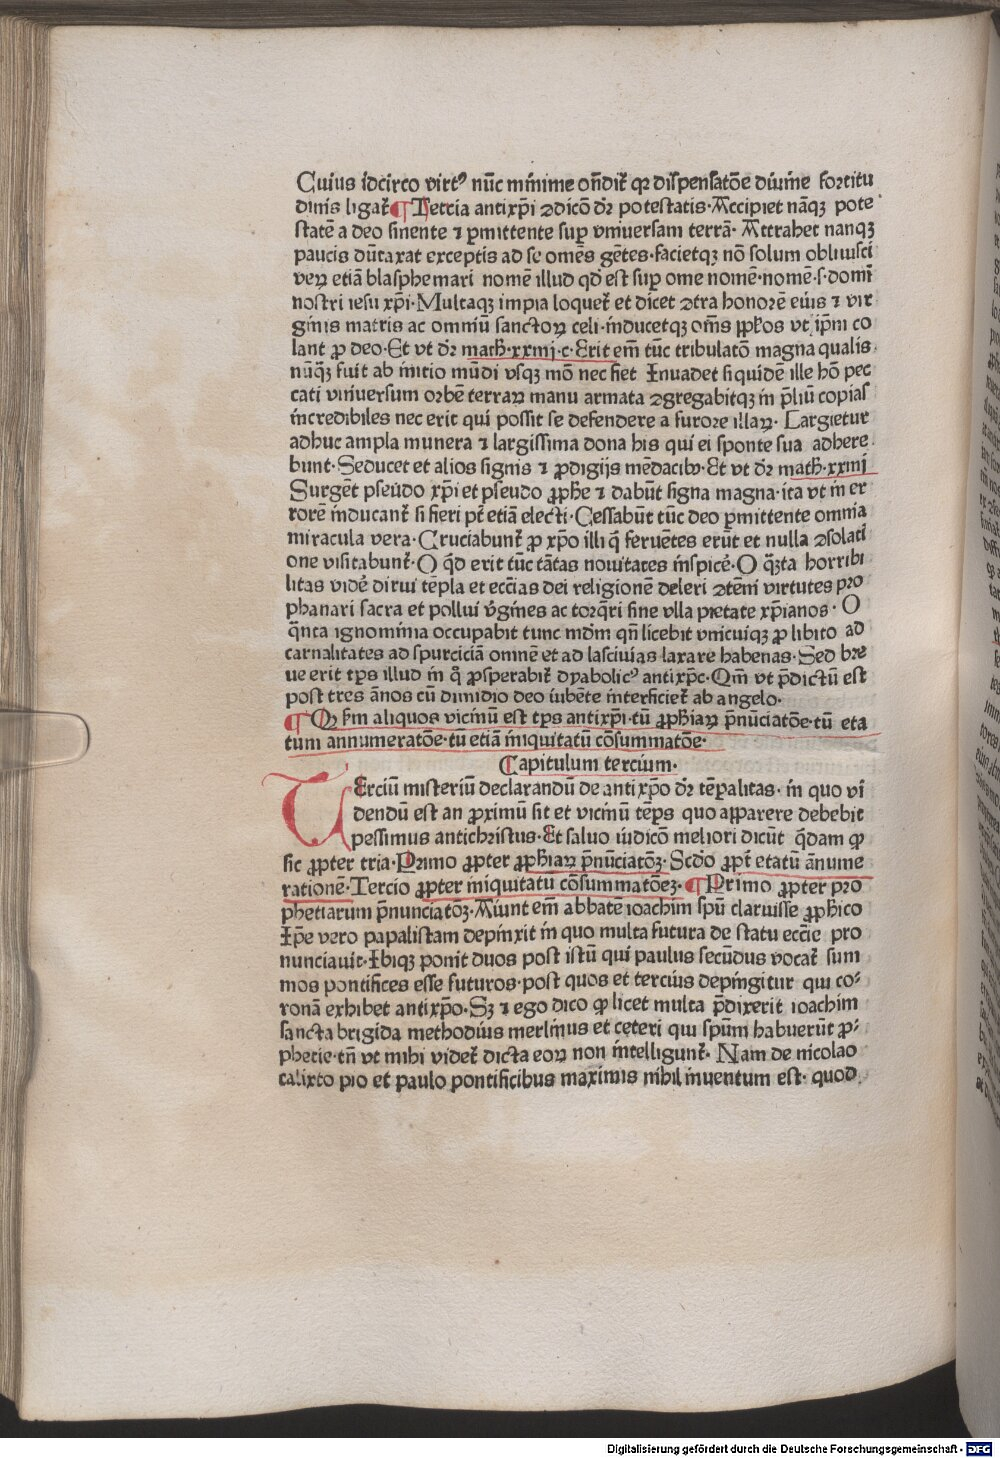 Cuius idcirco virtꝰ nūc mīnime oñdit̄ qꝛ dispensatōe diuine fortitu
dinis ligat̄ ¶ Tercia antixp̄i ꝯdicō dr̄ potestatis. Accipiet nāqꝫ pote
statē a deo sinente ⁊ ꝑmittente suꝑ vniuersam terrā. Attrahet nanqꝫ
paucis dūtaxat exceptis ad se omēs gētes. facietqꝫ nō solum obliuisci
veꝝ etiā blasphemari nomē illud qd̄ est suꝑ ome nomē. nomē .s. domī
nostri iesu xp̄i. Multaqꝫ impia loquet̄ et dicet ꝯtra honorē eius ⁊ vir
ginis matris ac omniū sanctoꝝ celi. inducetqꝫ om̄s pp̄los vt ip̄m co
lant ꝓ deo. Et vt dr̄ math̄. xxiiij. c. Erit em̄ tūc tribulatō magna qualis
nūqꝫ fuit ab initio mūdi vsqꝫ mō nec fiet Inuadet siquidē ille hō pec
cati vniuersum orbē terraꝝ manu armata ꝯgregabitqꝫ in p̄liū copias
incredibiles nec erit qui possit se defendere a furore illaꝝ. Largietur
adhuc ampla munera ⁊ largissima dona his qui ei sponte sua adhere
bunt. Seducet et alios signis ⁊ ꝓdigijs mēdacibꝰ. Et vt dr̄ math̄. xxiiij
Surgēt pseudo xp̄i et pseudo ꝓph̄e ⁊ dabūt signa magna. ita vt in er
rorē inducant̄ si fieri pt̄ etiā electi. Cessabūt tūc deo ꝑmittente omnia
miracula vera. Cruciabunt̄ ꝓ xp̄o illi q̄ feruētes erūt et nulla ꝯsolati
one visitabunt̄. O qd̄ erit tūc tātas nouitates inspicē. O q̄ta horribi
litas vidē dirui tēpla et ecc̄ias dei religionē deleri ꝯtēni virtutes pro
phanari sacra et pollui v̄gines ac torq̄ri sine vlla pietate xp̄ianos. O
q̄nta ignominia occupabit tunc mūdm qn̄ licebit vnicuiqꝫ ꝓ libito ad
carnalitates ad spurciciā omnē et ad lasciuias laxare habenas. Sed bre
ue erit tp̄s illud in q̊ ꝓsperabit̄ dyabolicꝰ antixp̄c. Qm̄ vt p̄dictū est
post tres ānos cū dimidio deo iubēte interficiet̄ ab angelo.
¶ Qꝫ fm aliquos vicinū est tp̄s antixp̄i. tū ꝓph̄iaꝝ p̄nūciatōe. tū eta
tum annumeratōe. tū etiā iniquitatū cōsummatōe.
Capitulum tercium.
TErciū misteriū declarandū de antixp̄o dr̄ tēꝑalitas. in quo vi
dendū est an ꝓximū sit et vicinū tēpꝰ quo apparere debebit
pessimus antichristus. Et saluo iudicō meliori dicūt q̄dam ꝙ
sic ꝓpter tria. Primo ꝓpter ꝓph̄iaꝝ p̄nūciatōꝫ. Scd̄o ꝓpt̄ etatū ānume
rationē. Tercio ꝓpter iniquitatū cōsummatōeꝫ. ¶ Primo ꝓpter pro
phetiarum p̄nunciatōꝫ. Aiunt em̄ abbatē ioachim spū claruisse ꝓph̄ico
Ip̄e vero papalistam depinxit in quo multa futura de statu ecc̄ie pro
nunciauit. Ibiqꝫ ponit duos post istū qui paulus secūdus vocat̄ sum
mos pontifices esse futuros. post quos et tercius depingitur qui co⸗
ronā exhibet antixp̄o. Sꝫ ⁊ ego dico ꝙ licet multa p̄dixerit ioachim
sancta brigida methodius merlinus et ceteri qui spūm habuerūt ꝓ⸗
phetie. tn̄ vt mihi videt̄ dicta eoꝝ non intelligunt̄. Nam de nicolao
calixto pio et paulo pontificibus maximis nihil inuentum est. quod
Digitalisierung gefördert durch die Deutsche Forschungsgemeinschaft - DFG